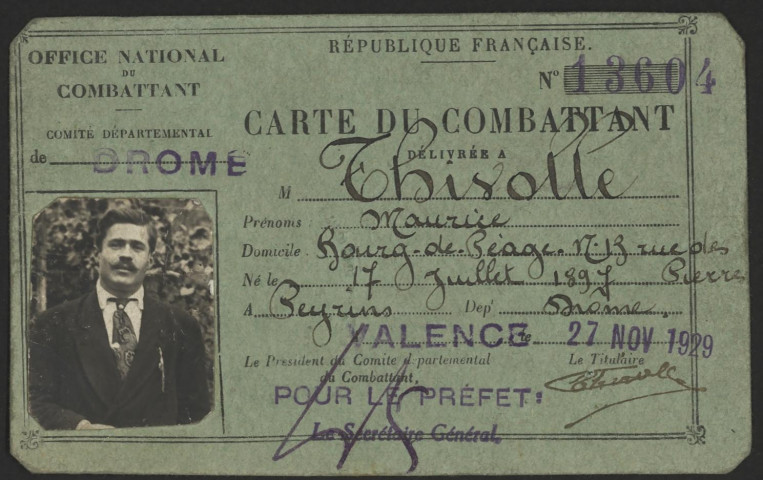 OFFICE NATIONAL
DU
COMBATTANT
COMITÉ DÉPARTEMENTAL
de DROME
RÉPUBLIQUE FRANÇAISE.
N° 13604
CARTE DU COMBATTANT
DÉLIVRÉE A
M Thivolle
Prénoms : Maurice
Domicile Bourg-de-Péage. N. 13 rue des
Pierres
Né le 17 Juillet 1897
A Peyrins Dept Drôme.
VALENCE le 27 NOV 1929
Le Président du Comité départemental
du Combattant,
Le Titulaire
POUR LE PRÉFET:
Le Secrétaire Général.
Thivolle